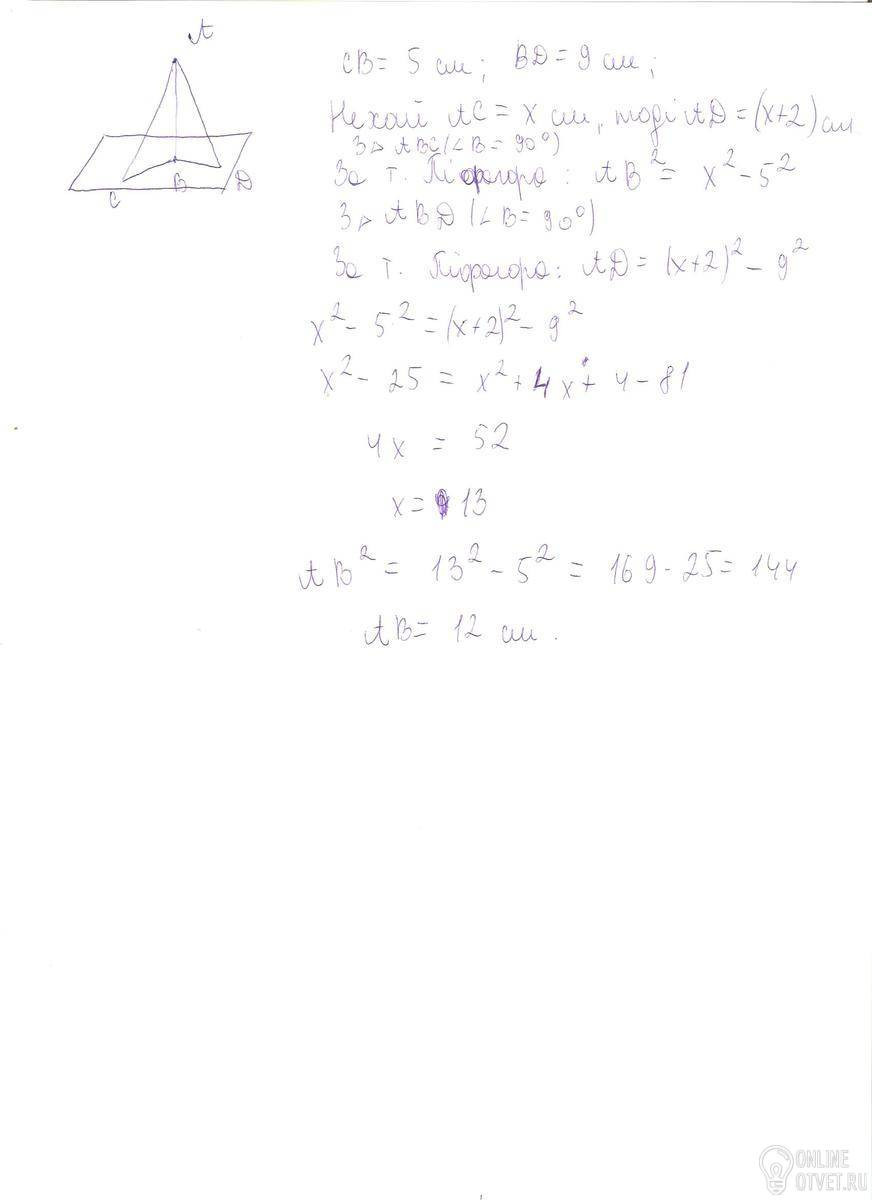 A
C
B
D
CB = 5 см; BD = 9 см;
Нехай AC = x см, тоді AD = (x+2) см
З △ ABC (∠B = 90°)
За т. Піфагора: AB² = x² - 5²
З △ ABD (∠B = 90°)
За т. Піфагора: AD = (x+2)² - 9²
x² - 5² = (x+2)² - 9²
x² - 25 = x² + 4x + 4 - 81
4x = 52
x = 13
AB² = 13² - 5² = 169 - 25 = 144
AB = 12 см.
ONLINE
OTVET.RU